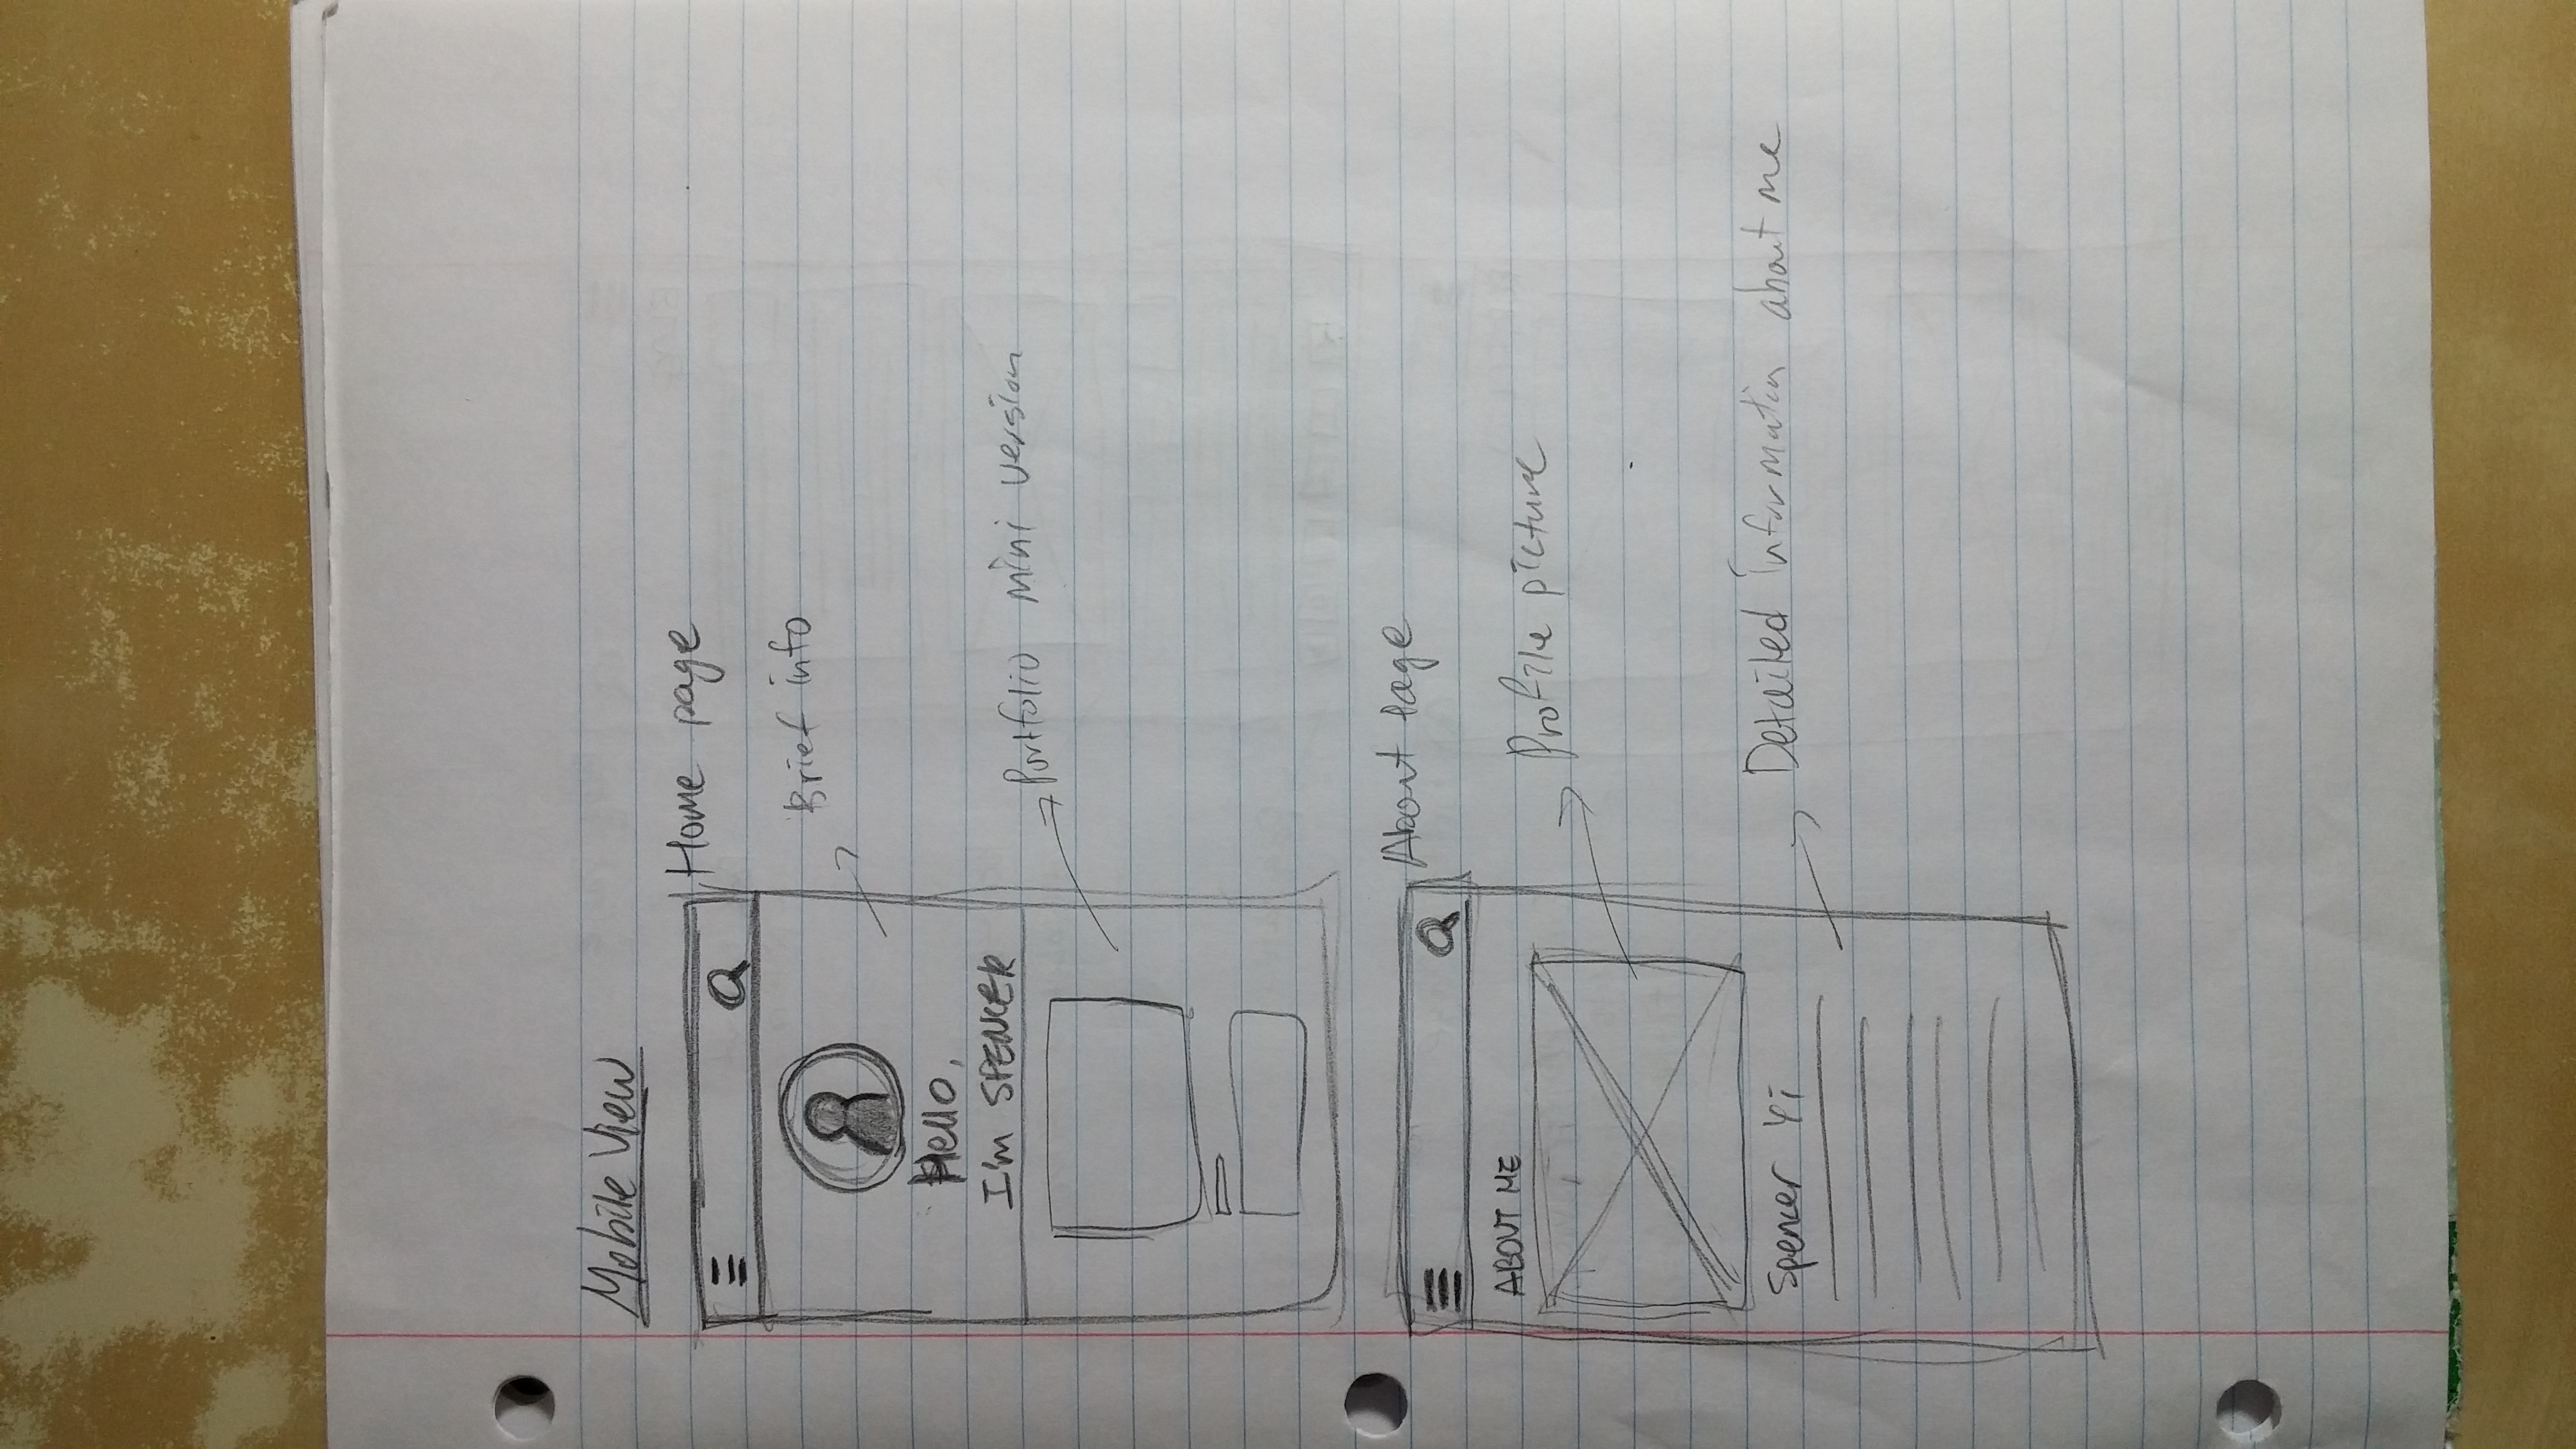 Mobile View
Home page
Brief info
Hello,
I'm SPENCER
Portfolio mini version
About Page
ABOUT ME
Profile picture
Spencer Yi
Detailed information about me